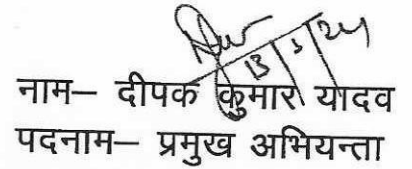 13/5/24
नाम– दीपक कुमार यादव
पदनाम– प्रमुख अभियन्ता